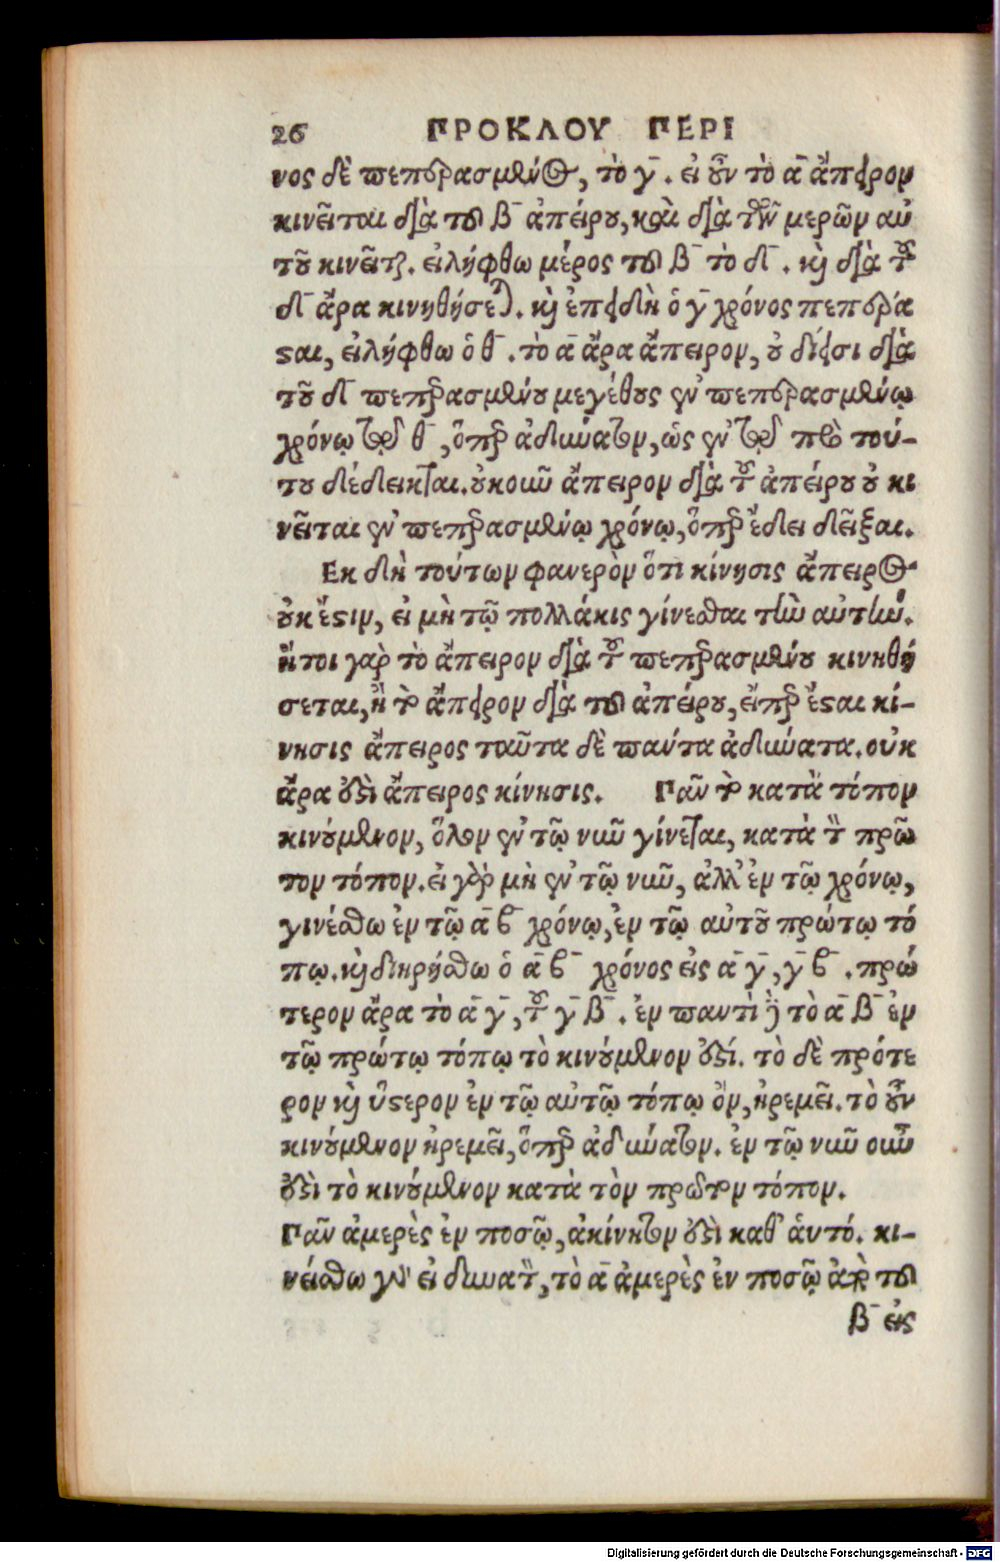 26 ΠΡΟΚΛΟΥ ΠΕΡΙ
νος δὲ πεπερασμένος, τὸ γ̄. εἰ οὖν τὸ ᾱ ἄπειρον
κινεῖται διὰ τοῦ β̄ ἀπείρου, καὶ διὰ τῶν μερῶν αὐ
τοῦ κινεῖται. εἰλήφθω μέρος τοῦ β̄ τὸ δ̄. καὶ διὰ τοῦ
δ̄ ἄρα κινηθήσεται. καὶ ἐπειδὴ ὁ γ̄ χρόνος πεπέρα
σαι, εἰλήφθω ὁ θ̄. τὸ ᾱ ἄρα ἄπειρον, οὐ δίεισι διὰ
τοῦ δ̄ πεπερασμένου μεγέθους ἐν πεπερασμένῳ
χρόνῳ τῷ θ̄, ὅπερ ἀδύνατον, ὡς ἐν τῷ πρὸ τού-
του δέδεικται. οὐκοῦν ἄπειρον διὰ τοῦ ἀπείρου οὐ κι
νεῖται ἐν πεπερασμένῳ χρόνῳ, ὅπερ ἔδει δεῖξαι.
Εκ δὴ τούτων φανερὸν ὅτι κίνησις ἄπειρος
οὐκ ἔστιν, εἰ μὴ τῷ πολλάκις γίνεσθαι τὴν αὐτήν.
ἤτοι γὰρ τὸ ἄπειρον διὰ τοῦ πεπερασμένου κινηθή
σεται, ἢ τὸ ἄπειρον διὰ τοῦ ἀπείρου, εἴπερ ἔσται κί-
νησις ἄπειρος ταῦτα δὲ πάντα ἀδύνατα. οὐκ
ἄρα ἐστὶ ἄπειρος κίνησις. Πᾶν τὸ κατὰ τόπον
κινούμενον, ὅλον ἐν τῷ νῦν γίνεται, κατὰ τὸν πρῶ
τον τόπον. εἰ γὰρ μὴ ἐν τῷ νῦν, ἀλλ' ἐν τῷ χρόνῳ,
γινέσθω ἐν τῷ ᾱ β̄ χρόνῳ, ἐν τῷ αὐτοῦ πρώτῳ τό
πῳ. καὶ διῃρήσθω ὁ ᾱ β̄ χρόνος εἰς ᾱ γ̄, γ̄ β̄. πρώ
τερον ἄρα τὸ ᾱ γ̄, τοῦ γ̄ β̄. ἐν παντὶ δὲ τὸ ᾱ β̄ ἐν
τῷ πρώτῳ τόπῳ τὸ κινούμενον ἐστί. τὸ δὲ πρότε
ρον καὶ ὕστερον ἐν τῷ αὐτῷ τόπῳ ὄν, ἠρεμεῖ. τὸ οὖν
κινούμενον ἠρεμεῖ, ὅπερ ἀδύνατον. ἐν τῷ νῦν οὖν
ἐστὶ τὸ κινούμενον κατὰ τὸν πρῶτον τόπον.
Πᾶν ἀμερὲς ἐν ποσῷ, ἀκίνητον ἐστὶ καθ' ἁυτό. κι-
νείσθω γὰρ εἰ δυνατὸν, τὸ ᾱ ἀμερὲς ἐν ποσῷ ἀπὸ τοῦ
β̄ εἰς
Digitalisierung gefördert durch die Deutsche Forschungsgemeinschaft - DFG